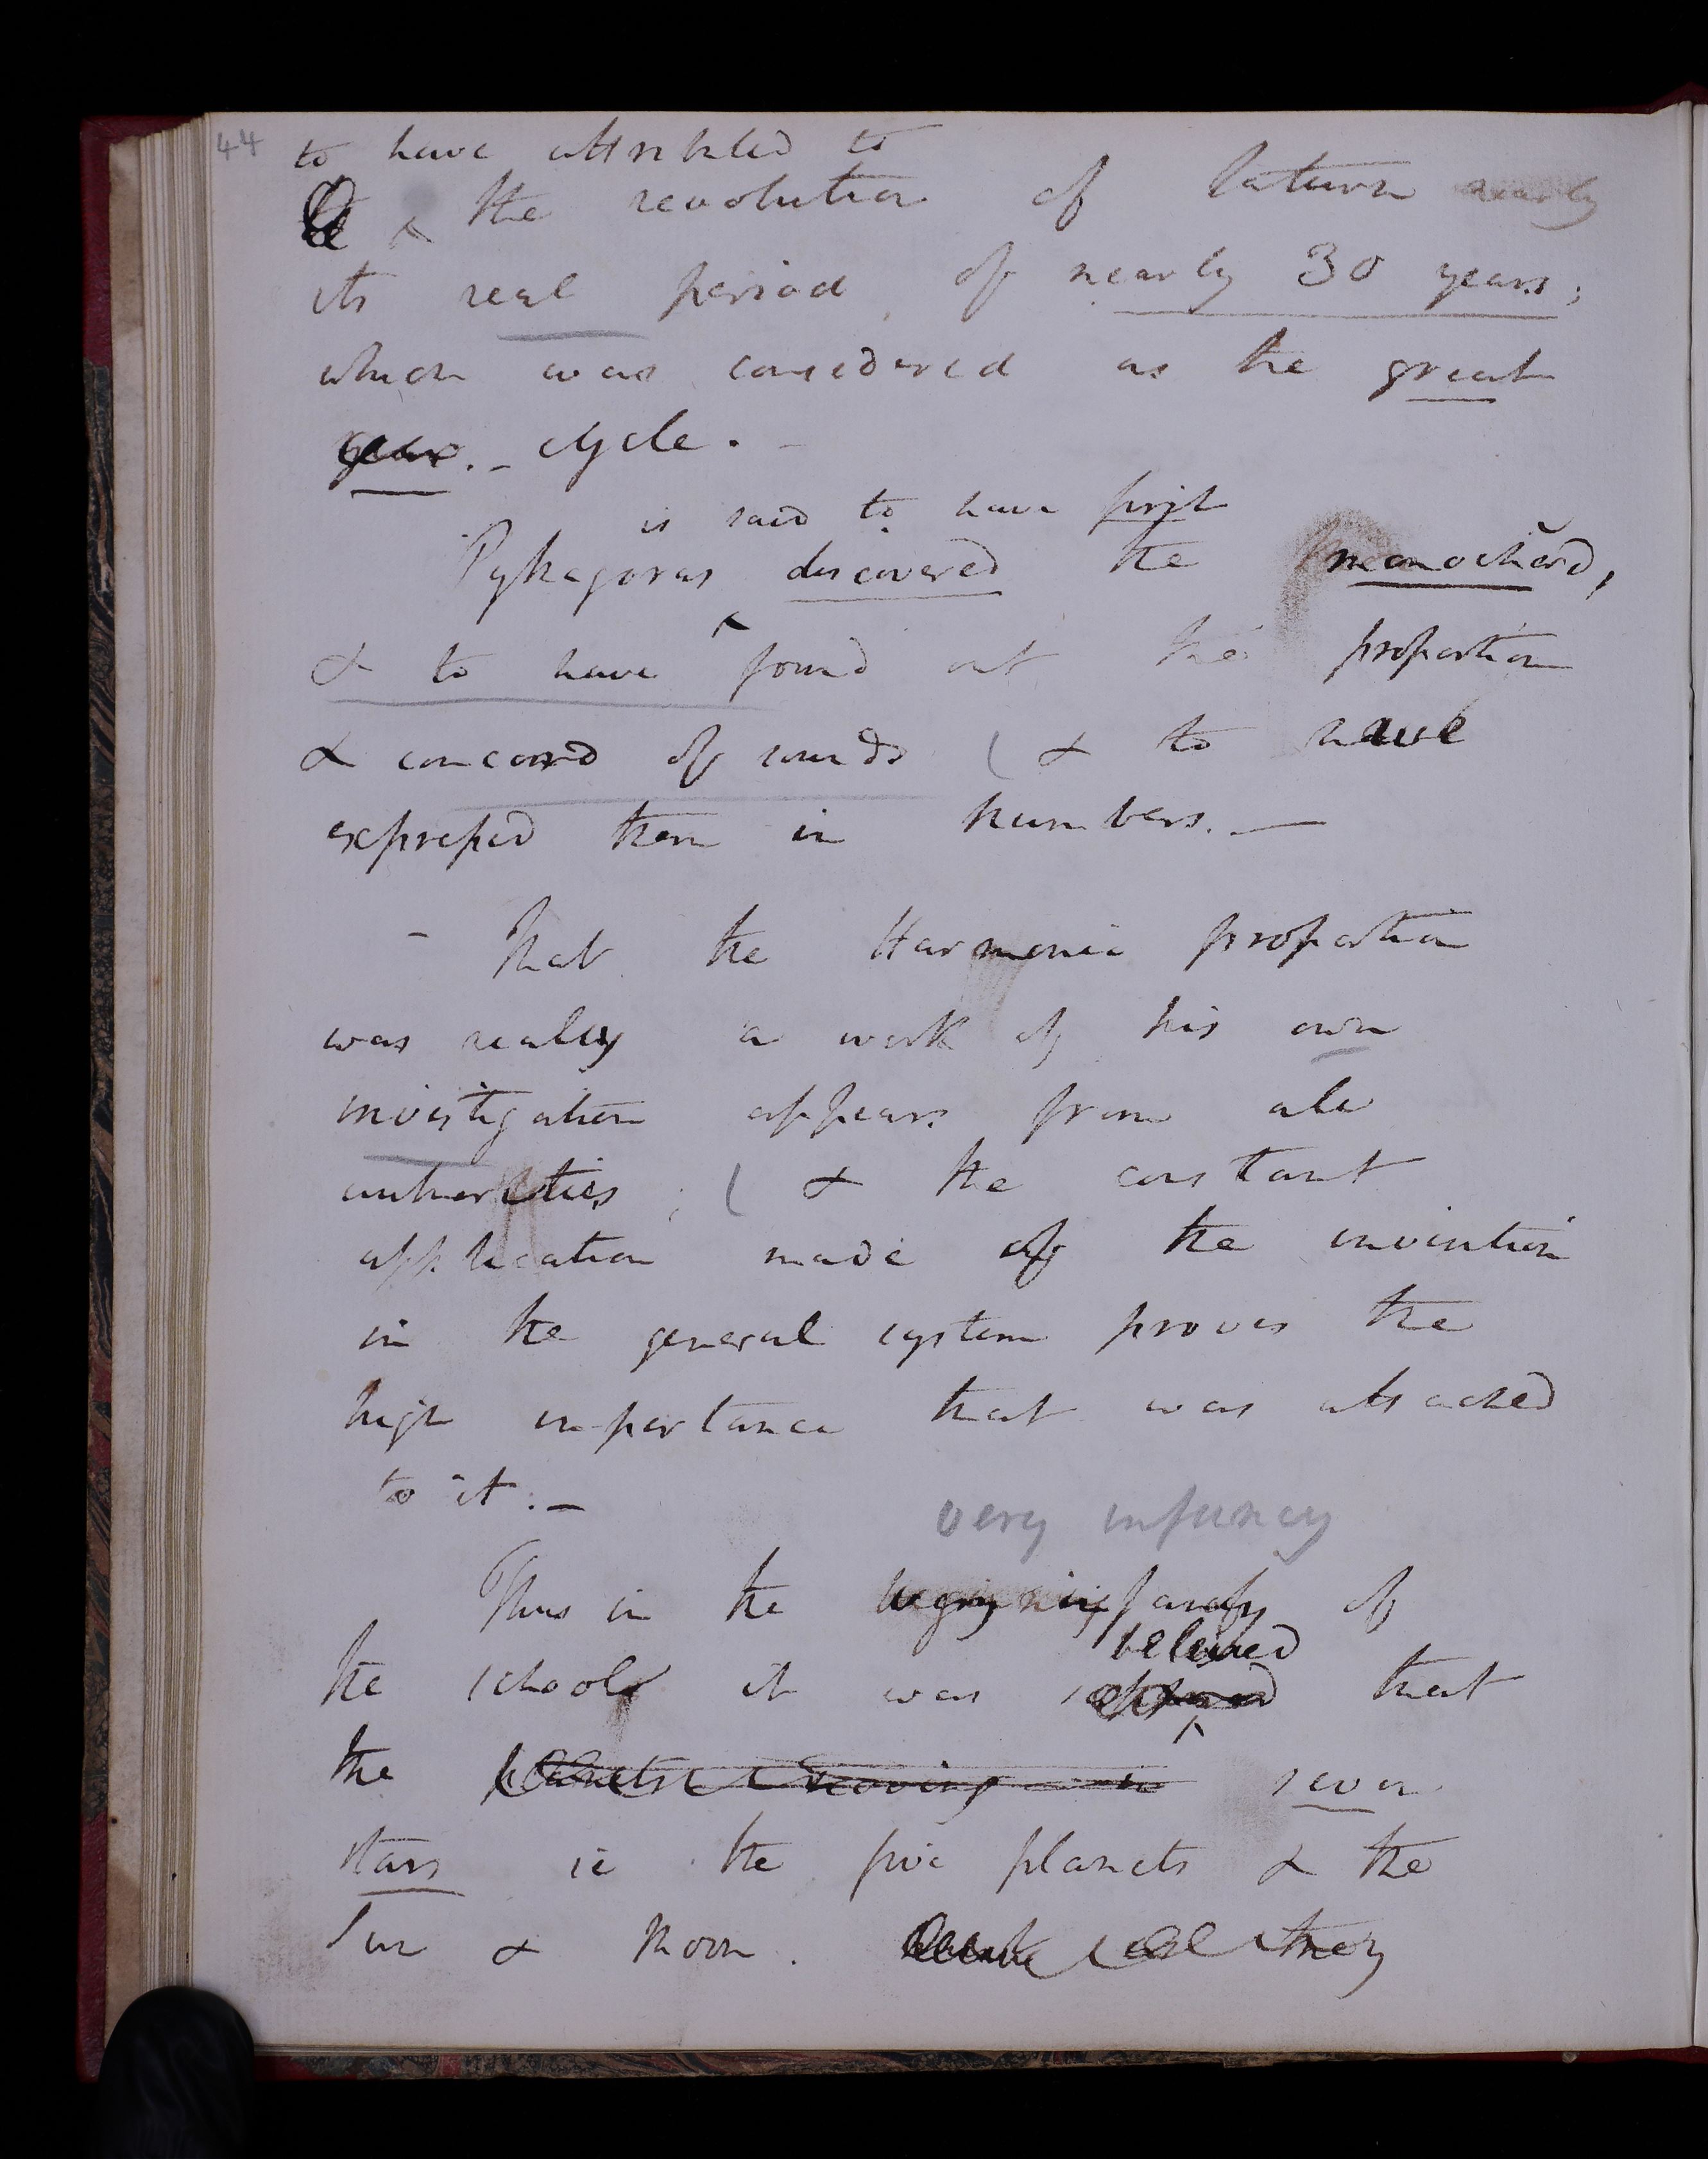 44
to have attributed to
the revolution of Saturn nearly
its real period of nearly 30 years;
which was considered as the great
year. - cycle. -
is said to have first
Pythagoras discovered the monochord,
& to have found out the proportion
& concord of sounds ( & to have
expressed them in numbers. —
- That the Harmonic proportion
was really a work of his own
investigation appears from all
authorities; ( & the constant
application made of the invention
in the general system proves the
high importance that was attached
to it. —
very infancy
Thus in the beginning of
the school it was believed that
the planets moving in seven
stars ie the five planets & the
Sun & Moon. they